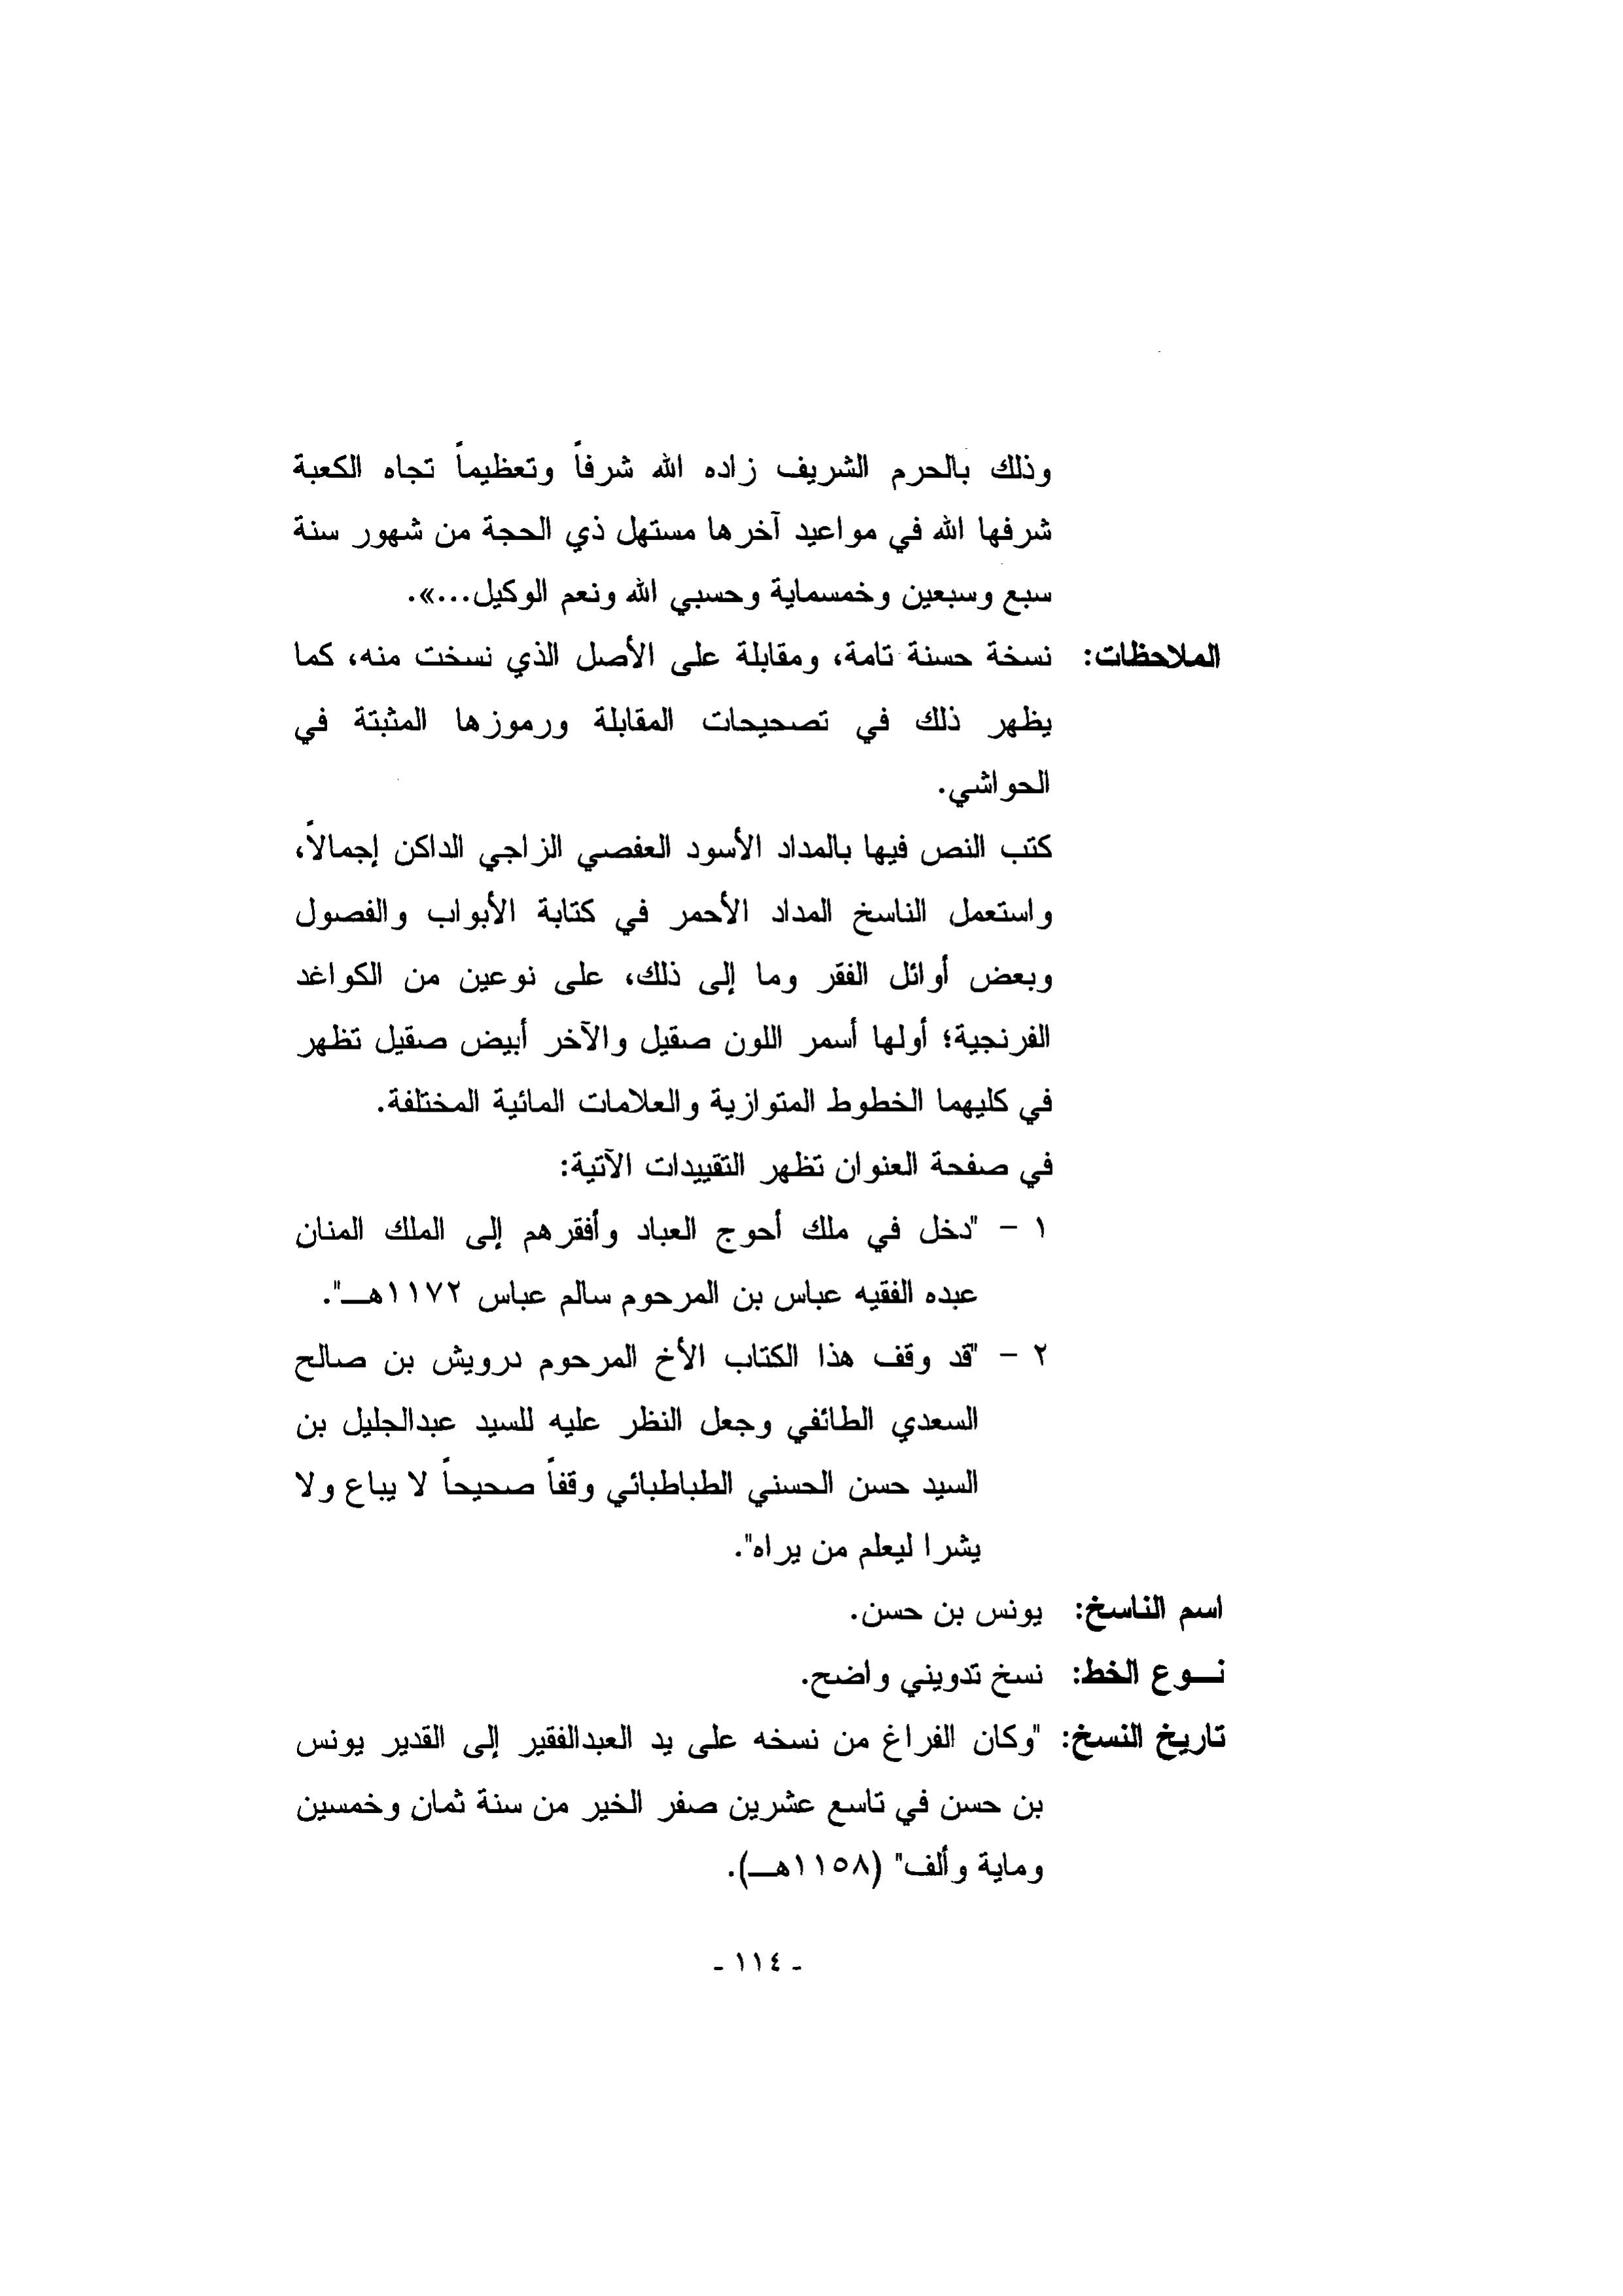 وذلك بالحرم الشريف زاده الله شرفاً وتعظيماً تجاه الكعبة
شرفها الله في مواعيد آخرها مستهل ذي الحجة من شهور سنة
سبع وسبعين وخمسماية وحسبي الله ونعم الوكيل...».
الملاحظات: نسخة حسنة تامة، ومقابلة على الأصل الذي نسخت منه، كما
يظهر ذلك في تصحيحات المقابلة ورموزها المثبتة في
الحواشي.
كتب النص فيها بالمداد الأسود العفصي الزاجي الداكن إجمالاً،
واستعمل الناسخ المداد الأحمر في كتابة الأبواب والفصول
وبعض أوائل الفقر وما إلى ذلك، على نوعين من الكواغد
الفرنجية؛ أولها أسمر اللون صقيل والآخر أبيض صقيل تظهر
في كليهما الخطوط المتوازية والعلامات المائية المختلفة.
في صفحة العنوان تظهر التقييدات الآتية:
١ - "دخل في ملك أحوج العباد وأفقرهم إلى الملك المنان
عبده الفقيه عباس بن المرحوم سالم عباس ١١٧٢هـ".
٢ - "قد وقف هذا الكتاب الأخ المرحوم درويش بن صالح
السعدي الطائفي وجعل النظر عليه للسيد عبدالجليل بن
السيد حسن الحسني الطباطبائي وقفاً صحيحاً لا يباع ولا
يشرا ليعلم من يراه".
اسم الناسخ: يونس بن حسن.
نــوع الخط: نسخ تدويني واضح.
تاريخ النسخ: "وكان الفراغ من نسخه على يد العبدالفقير إلى القدير يونس
بن حسن في تاسع عشرين صفر الخير من سنة ثمان وخمسين
وماية وألف" (١١٥٨هـ).
- ١١٤ -